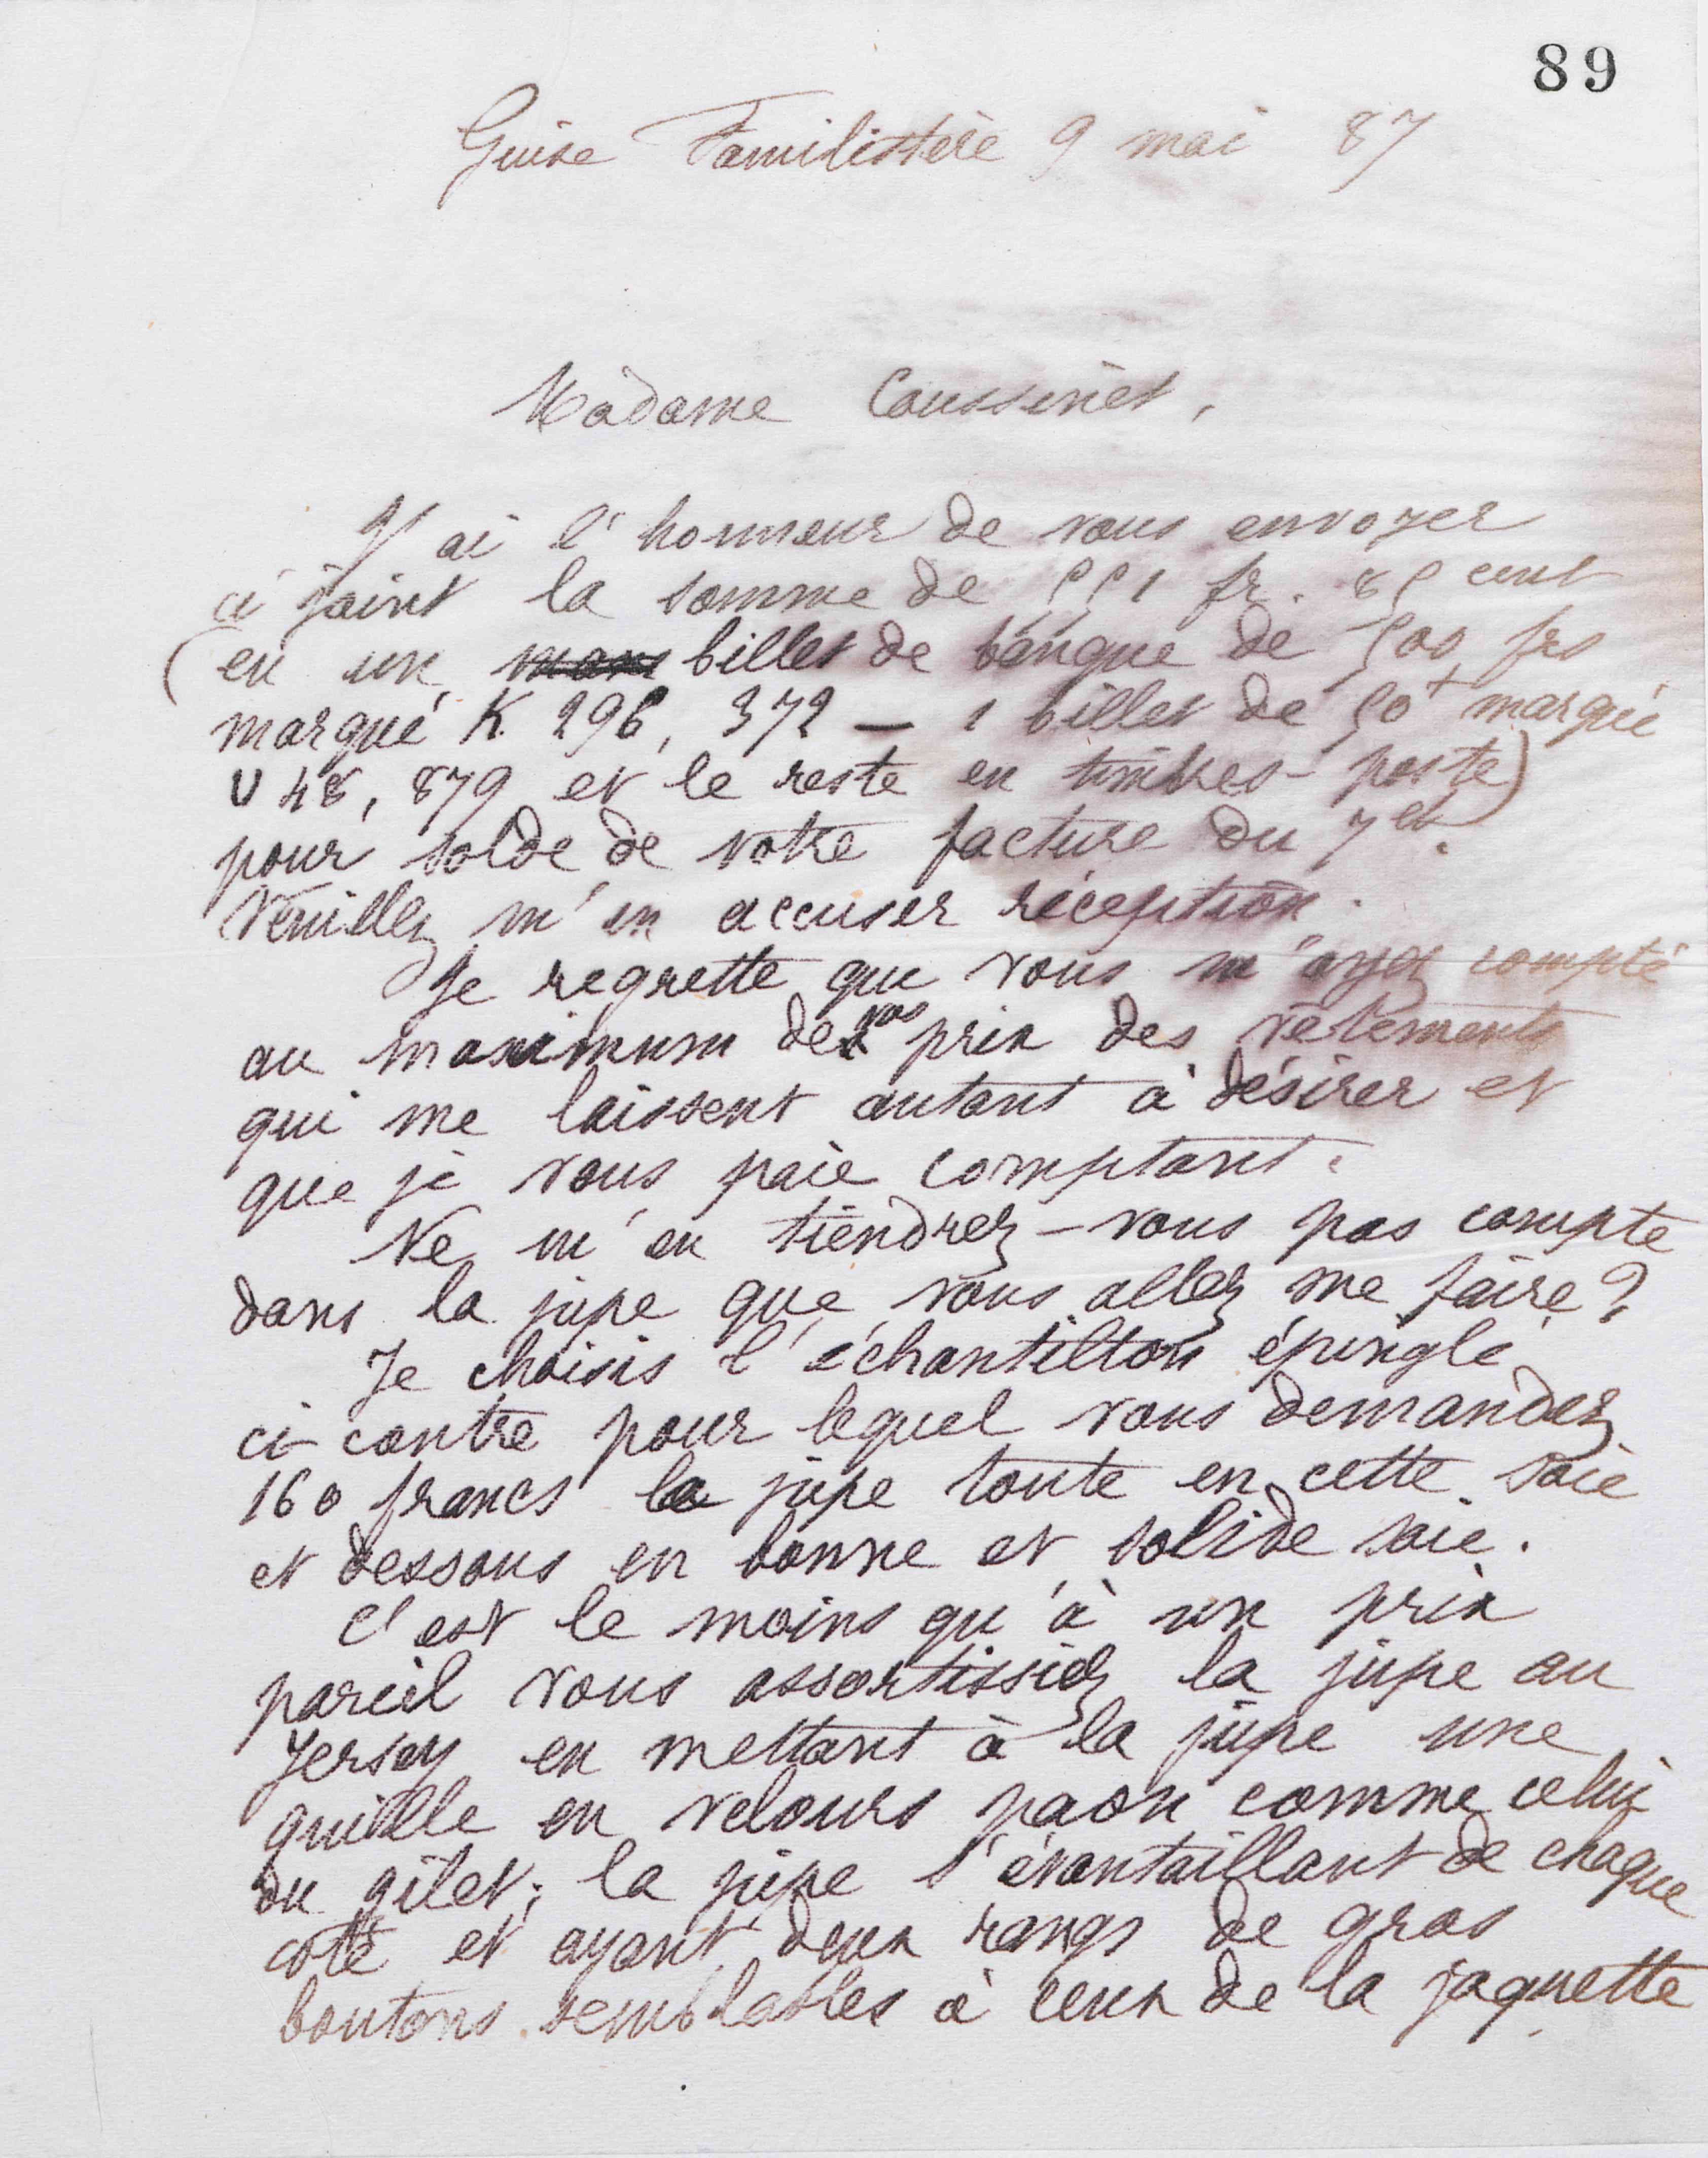 89
Guise Familistère 9 mai 87
Madame Coussinet,
J'ai l'honneur de vous envoyer
ci joint la somme de 551 fr. 85 cent
(en un billet de banque de 500 frs
marqué K. 296, 372 — 1 billet de 50 marqué
U 48, 879 et le reste en timbres-poste)
pour solde de votre facture du 7 et.
Veuillez m'en accuser réception.
Je regrette que vous m'ayez compté
au maximum de vos prix des vêtements
qui me laissent autant à désirer et
que je vous paie comptant.
Ne m'en tiendrez-vous pas compte
dans la jupe que vous allez me faire ?
Je choisis l'échantillon épinglé
ci-contre pour lequel vous demandez
160 francs la jupe toute en cette soie
et dessous en bonne et solide soie.
C'est le moins qu'à un prix
pareil vous assortissiez la jupe au
Jersey en mettant à la jupe une
quille en velours paon comme celui
du gilet ; la jupe s'évantaillant de chaque
coté et ayant deux rangs de gros
boutons semblables à ceux de la jaquette